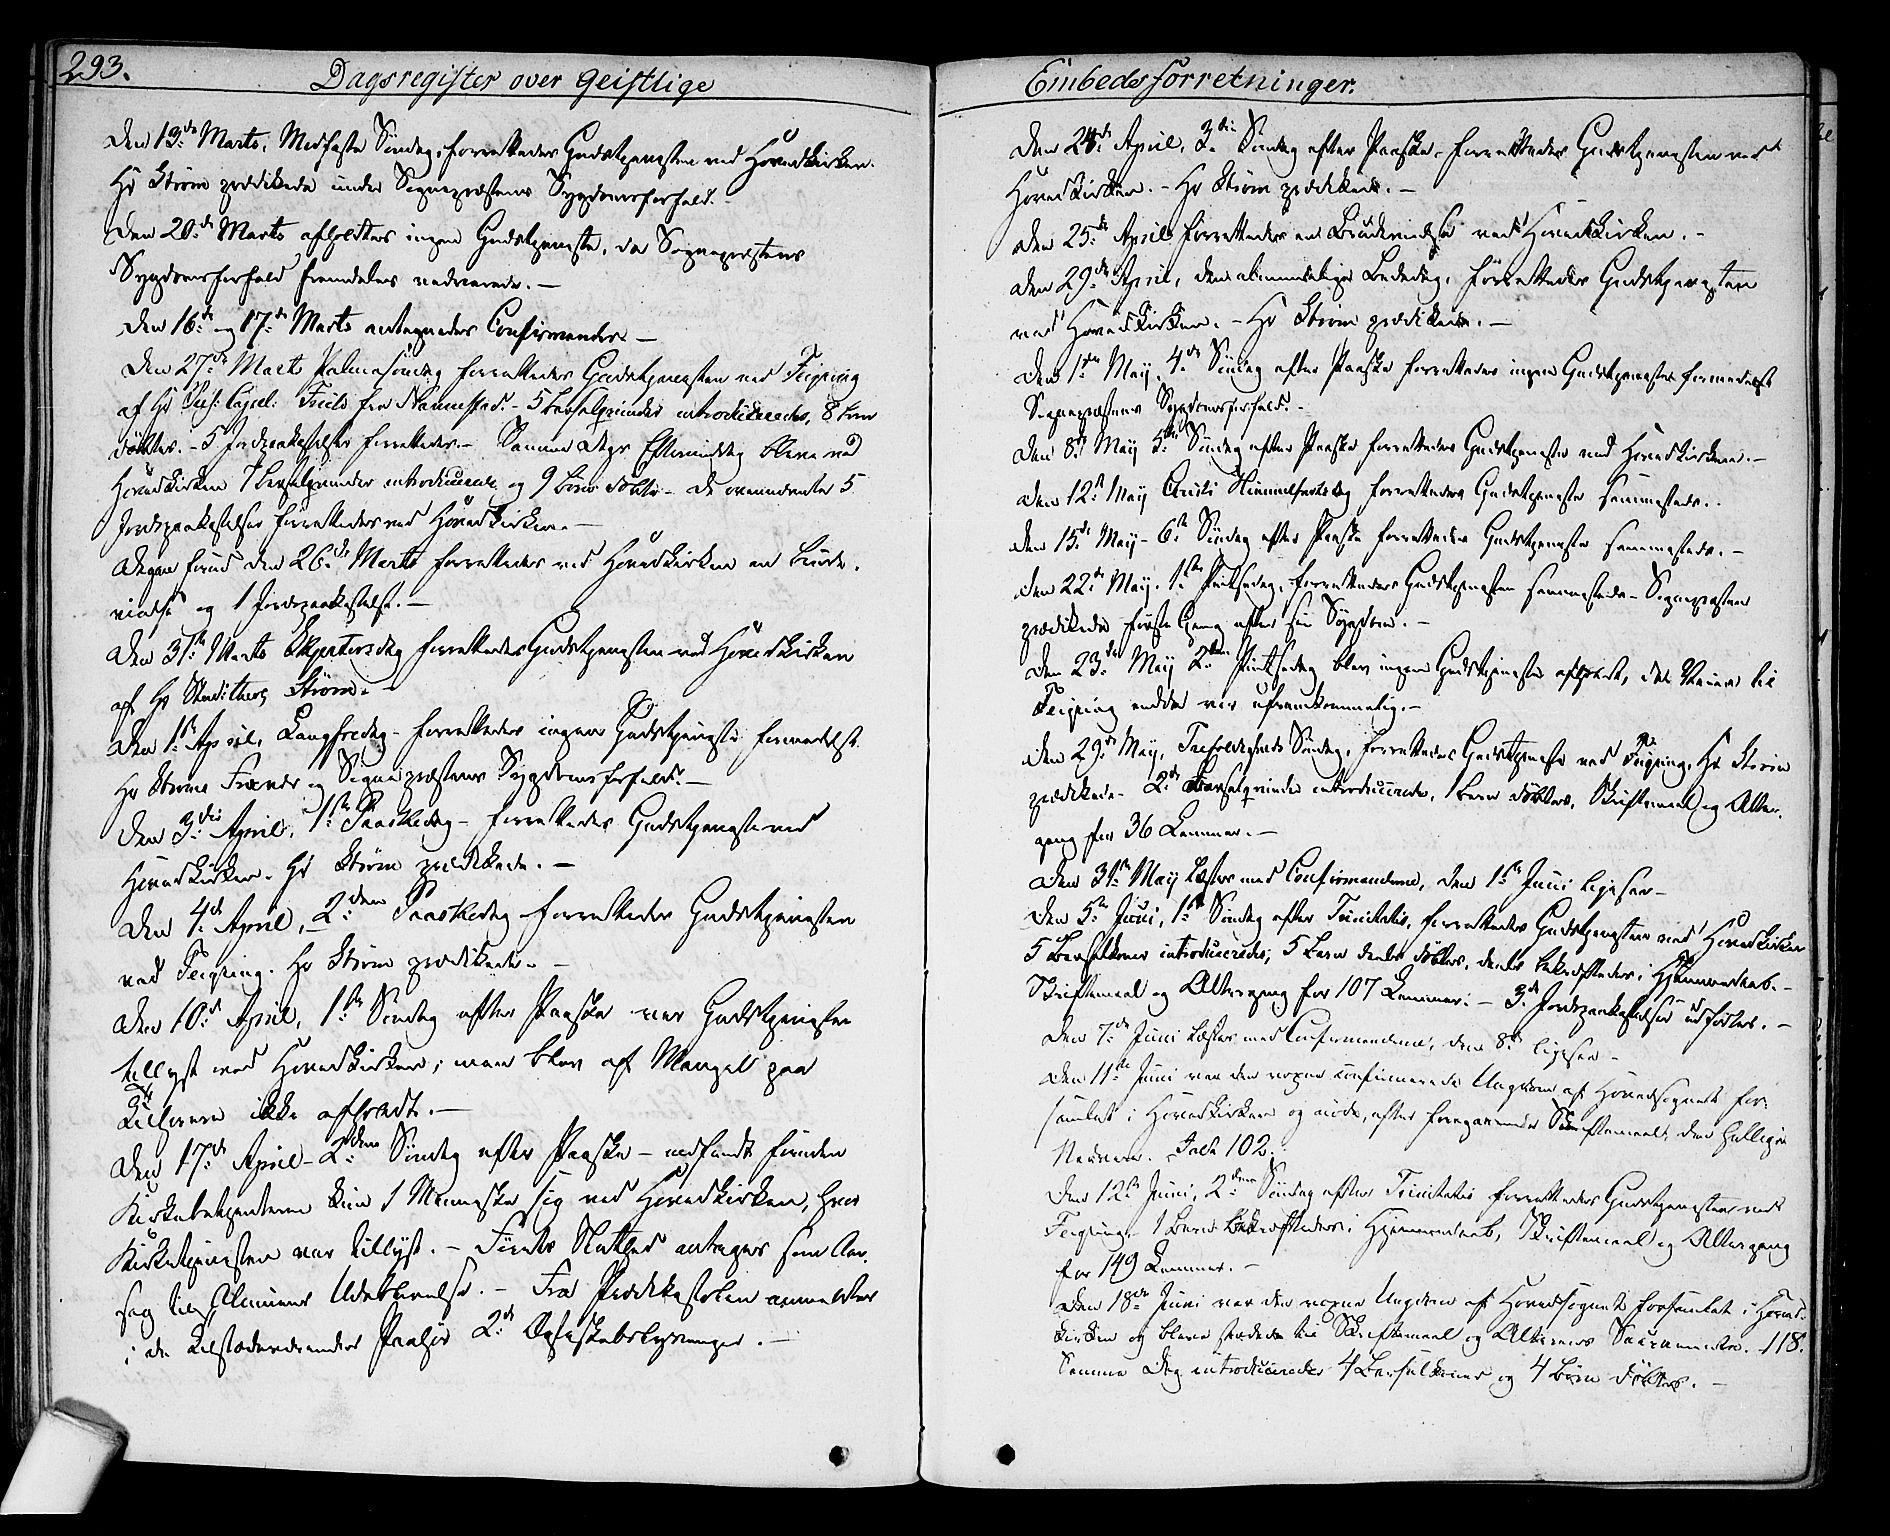 293.
Dagsregister over Geistlige
Den 13de Marts, Midfaste Söndag, forrettedes Gudstjenesten ved Hovedkirken.
Hr Strøm prædikede under Sognepræstens Sygdomsforfald. –
Den 20de Marts afholdtes ingen Gudstjeneste, da Sognepræstens
Sygdomsforfald fremdeles vedvarede. –
Den 16de og 17de Marts antegnedes Confirmander. –
Den 27de Marts Palmesöndag forrettedes Gudstjenesten ved Feiring
af Hr Pers: Capel: Friis fra Nannestad. – 5 Barselqvinder introduceredes, 8 Børn
döbtes. – 5 Jordpaakastelser forrettedes. – Samme Dags Eftermiddag bleve ved
Hovedkirken 7 Barselqvinder introducerede og 9 Börn döbte – De ovennævnte 5
Jordpaakastelser forrettedes ved Hovedkirken. –
Dagen forud den 26de Marts forrettedes ved Hovedkirken en Brude-
vielse og 1 Jordpaakastelse. –
Den 31te Marts Skjertorsdag forrettedes Gudstjenesten ved Hovedkirken
af Hr Strøm. –
Den 1ste April, Langfredag – forrettedes ingen Gudstjeneste formedelst
Hr Strøms og Sognepræstens Sygdomsforfald. –
Den 3die April, 1ste Paaskedag – forrettedes Gudstjeneste ved
Hovedkirken. Hr Strøm prædikede. –
Den 4de April, 2den Paaskedag forrettedes Gudstjenesten
ved Feiring. Hr Strøm prædikede. –
Den 10de April, 1ste Söndag efter Paaske var Gudstjenesten
tillyst ved Hovedkirken; men blev af Mangel paa
Tilhørere ikke afholdt. –
Den 17de April – 2den Söndag efter Paaske – indfandt foruden
Kirkebetjenterne kun 1 Menneske sig ved Hovedkirken, hvor
Kirketjenesten var tillyst. – Föret Slethed antages som Aar-
sag til Almuens Udeblivelse. – Fra Prædikestolen anmeldtes
i de tilstedeværendes Paahör 2de Ægteskabslysninger. –
Embedsforretninger.
Den 24de April, 3die Söndag efter Paaske, forrettedes Gudstjenesten ved
Hovedkirken. – Hr Strøm prædikede. –
Den 25de April forrettedes en Brudevielse ved Hovedkirken. –
Den 29de April, den almindelige Bededag, forrettedes Gudstjenesten
ved Hovedkirken. – Hr Strøm prædikede. –
Den 1ste May, 4de Söndag efter Paaske forrettedes ingen Gudstjeneste formedelst
Sognepræstens Sygdomsforfald. –
Den 8de May 5te Söndag efter Paaske forrettedes Gudstjeneste ved Hovedkirken. –
Den 12te May Christi Himmelfartsdag forrettedes Gudstjeneste sammesteds. –
Den 15de May – 6te Söndag efter Paaske forrettedes Gudstjeneste sammesteds. –
Den 22de May, 1ste Pintsedag, forrettedes Gudstjenesten sammesteds – Sognepræsten
prædikede förste Gang efter sin Sygdom. –
Den 23de May 2den Pintsedag blev ingen Gudstjeneste afholdt, da Veien til
Feiring endda var ufremkommelig. –
Den 29de May, Trefoldigheds Söndag, forrettedes Gudstjeneste ved Feiring, Hr Strøm
prædikede – 2de Barselqvinder introduceredes, 1 Barn döbtes, Skriftemaal og Alter-
gang for 36 Lemmer. –
Den 31te May læstes med Confirmanderne, den 1ste Juni ligesaa –
Den 5te Juni, 1ste Söndag efter Trinitatis, forrettedes Gudstjenesten ved Hovedkirken
5 Barselkoner introduceredes, 5 Börn deels döbtes, deels bekræftedes i Hjemmedaab. –
Skriftemaal og Altergang for 107 Lemmer. – 3de Jordpaakastelser udførtes. –
Den 7de Juni læstes med Confirmanderne, den 8de ligesaa –
Den 11te Juni var den confirmerede Ungdom af Hovedsognet for-
samlet i Hovedkirken og nöd, efter foregaaende Skriftemaal, den hellige
Nadvere. Talt 102.
Den 12te Juni, 2den Söndag efter Trinitatis forrettedes Gudstjenesten ved
Feiring, 1 Barn bekræftedes i Hjemmedaab, Skriftemaal og Altergang
for 149 Lemmer. –
Den 18de Juni var den Ungdom af Hovedsognet forsamlet i Hoved-
kirken og bleve stedede til Skriftemaal og Alterens Sacramente. 118.
Samme Dag introduceredes 4 Barselkoner og 4 Börn döbtes. –